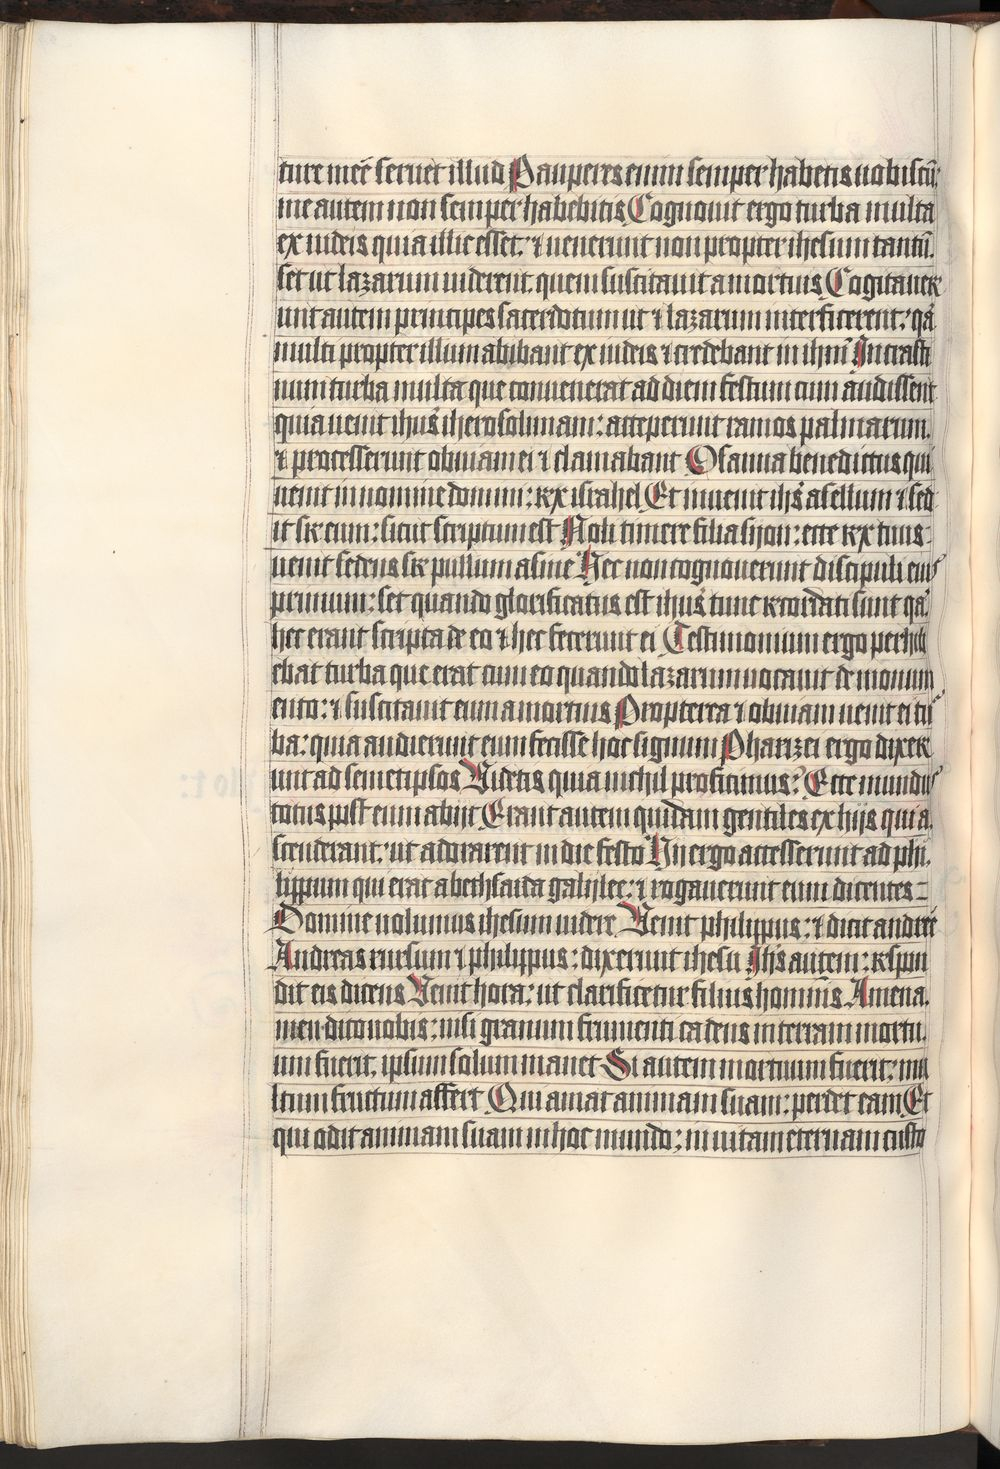 ture mee seruet illud Pauperes enim semper habetis uobiscū:
me autem non semper habebitis Cognouit ergo turba multa
ex iudeis quia illic esset: ⁊ uenerunt non propter ihesum tantū.
set ut lazarum uiderent. quem suscitauit a mortuis Cogitauer
unt autem principes sacerdotum ut ⁊ lazarum interficerent: qā
multi propter illum abibant ex iudeis ⁊ credebant in ihm̄ Incrasti
num turba multa que conuenerat ad diem festum cum audissent
quia uenit ihūs iherosolimam: acceperunt ramos palmarum.
⁊ processerunt obuiam ei ⁊ clamabant Osanna benedictus qui
uenit in nomine domini: rex israhel Et inuenit ihs̄ asellum ⁊ sed
it sr eum: sicut scriptum est Noli timere filia sijon: ecce rex tuus-
uenit sedens sr pullum asine Hec non cognouerunt discipuli eius
primum: set quando glorificatus est ihūs tunc recordati sunt qā
hec erant scripta de eo ⁊ hec fecerunt ei Testimonium ergo perhib
ebat turba que erat cum eo quando lazarum uocauit de monum
ento: ⁊ suscitauit eum a mortuis Propterea ⁊ obuiam uenit ei tur
ba: quia audierunt eum fecisse hoc signum Pharizei ergo dixer
unt ad semetipsos Videtis quia nichil proficimus? Ecce mundus
totus post eum abijt Erant autem quidam gentiles ex hijs qui a
scenderant: ut adorarent in die festo Hij ergo accesserunt ad phi
lippum qui erat a bethsaida galijlee: ⁊ rogauerunt eum dicentes
Domine uolumus ihesum uidere Venit philippus: ⁊ dicit andree
Andreas rursum ⁊ philippus: dixerunt ihesu Ihs̄ autem: respon
dit eis dicens Venit hora: ut clarificetur filius hominis Amen a
men dico uobis: nisi granum frumenti cadens in terram mortu
um fuerit. ipsum solum manet Si autem mortuum fuerit: mu
ltum fructum affert Qui amat animam suam: perdet eam Et
qui odit animam suam in hoc mundo: in uitam eternam custo